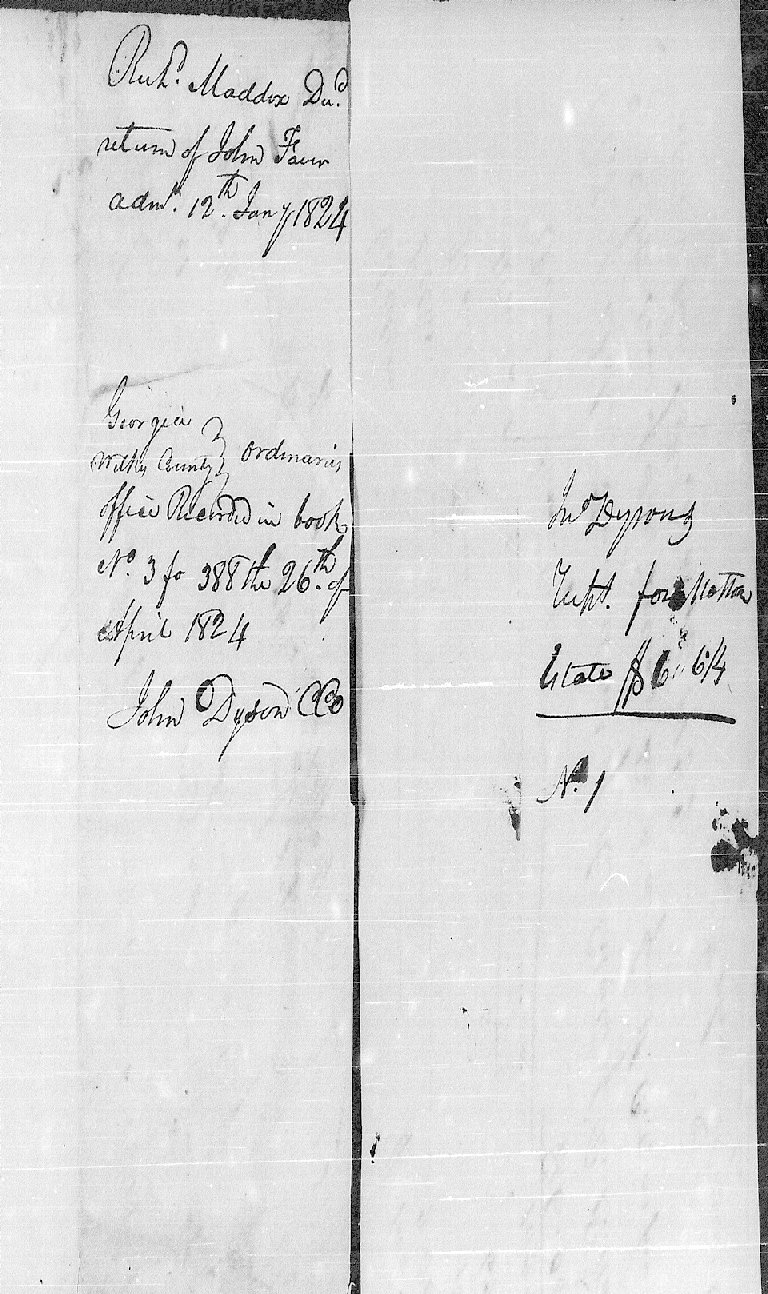 Richd. Maddox Decd.
return of John Favor
admr. 12th. Jany 1824
Georgia
Wilkes County } ordinaries
office Recorded in book
No. 3 fo 388 the 26th. of
April 1824
John Dyson CCO
Jno Dysons
Rect. for
Estate $6 6¼
No. 1